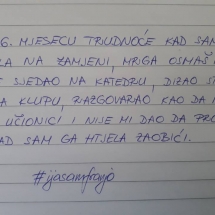 6. MJESECU TRUDNOĆE KAD SAM
LA NA ZAMJENI, MRGA OSMAŠ
T SJEDAO NA KATEDRU, DIZAO S
A KLUPU, RAZGOVARAO KAO DA N
UČIONICI I NIJE MI DAO DA PRO
AD SAM GA HTJELA ZAOBIĆI.
#ijasamfranjo